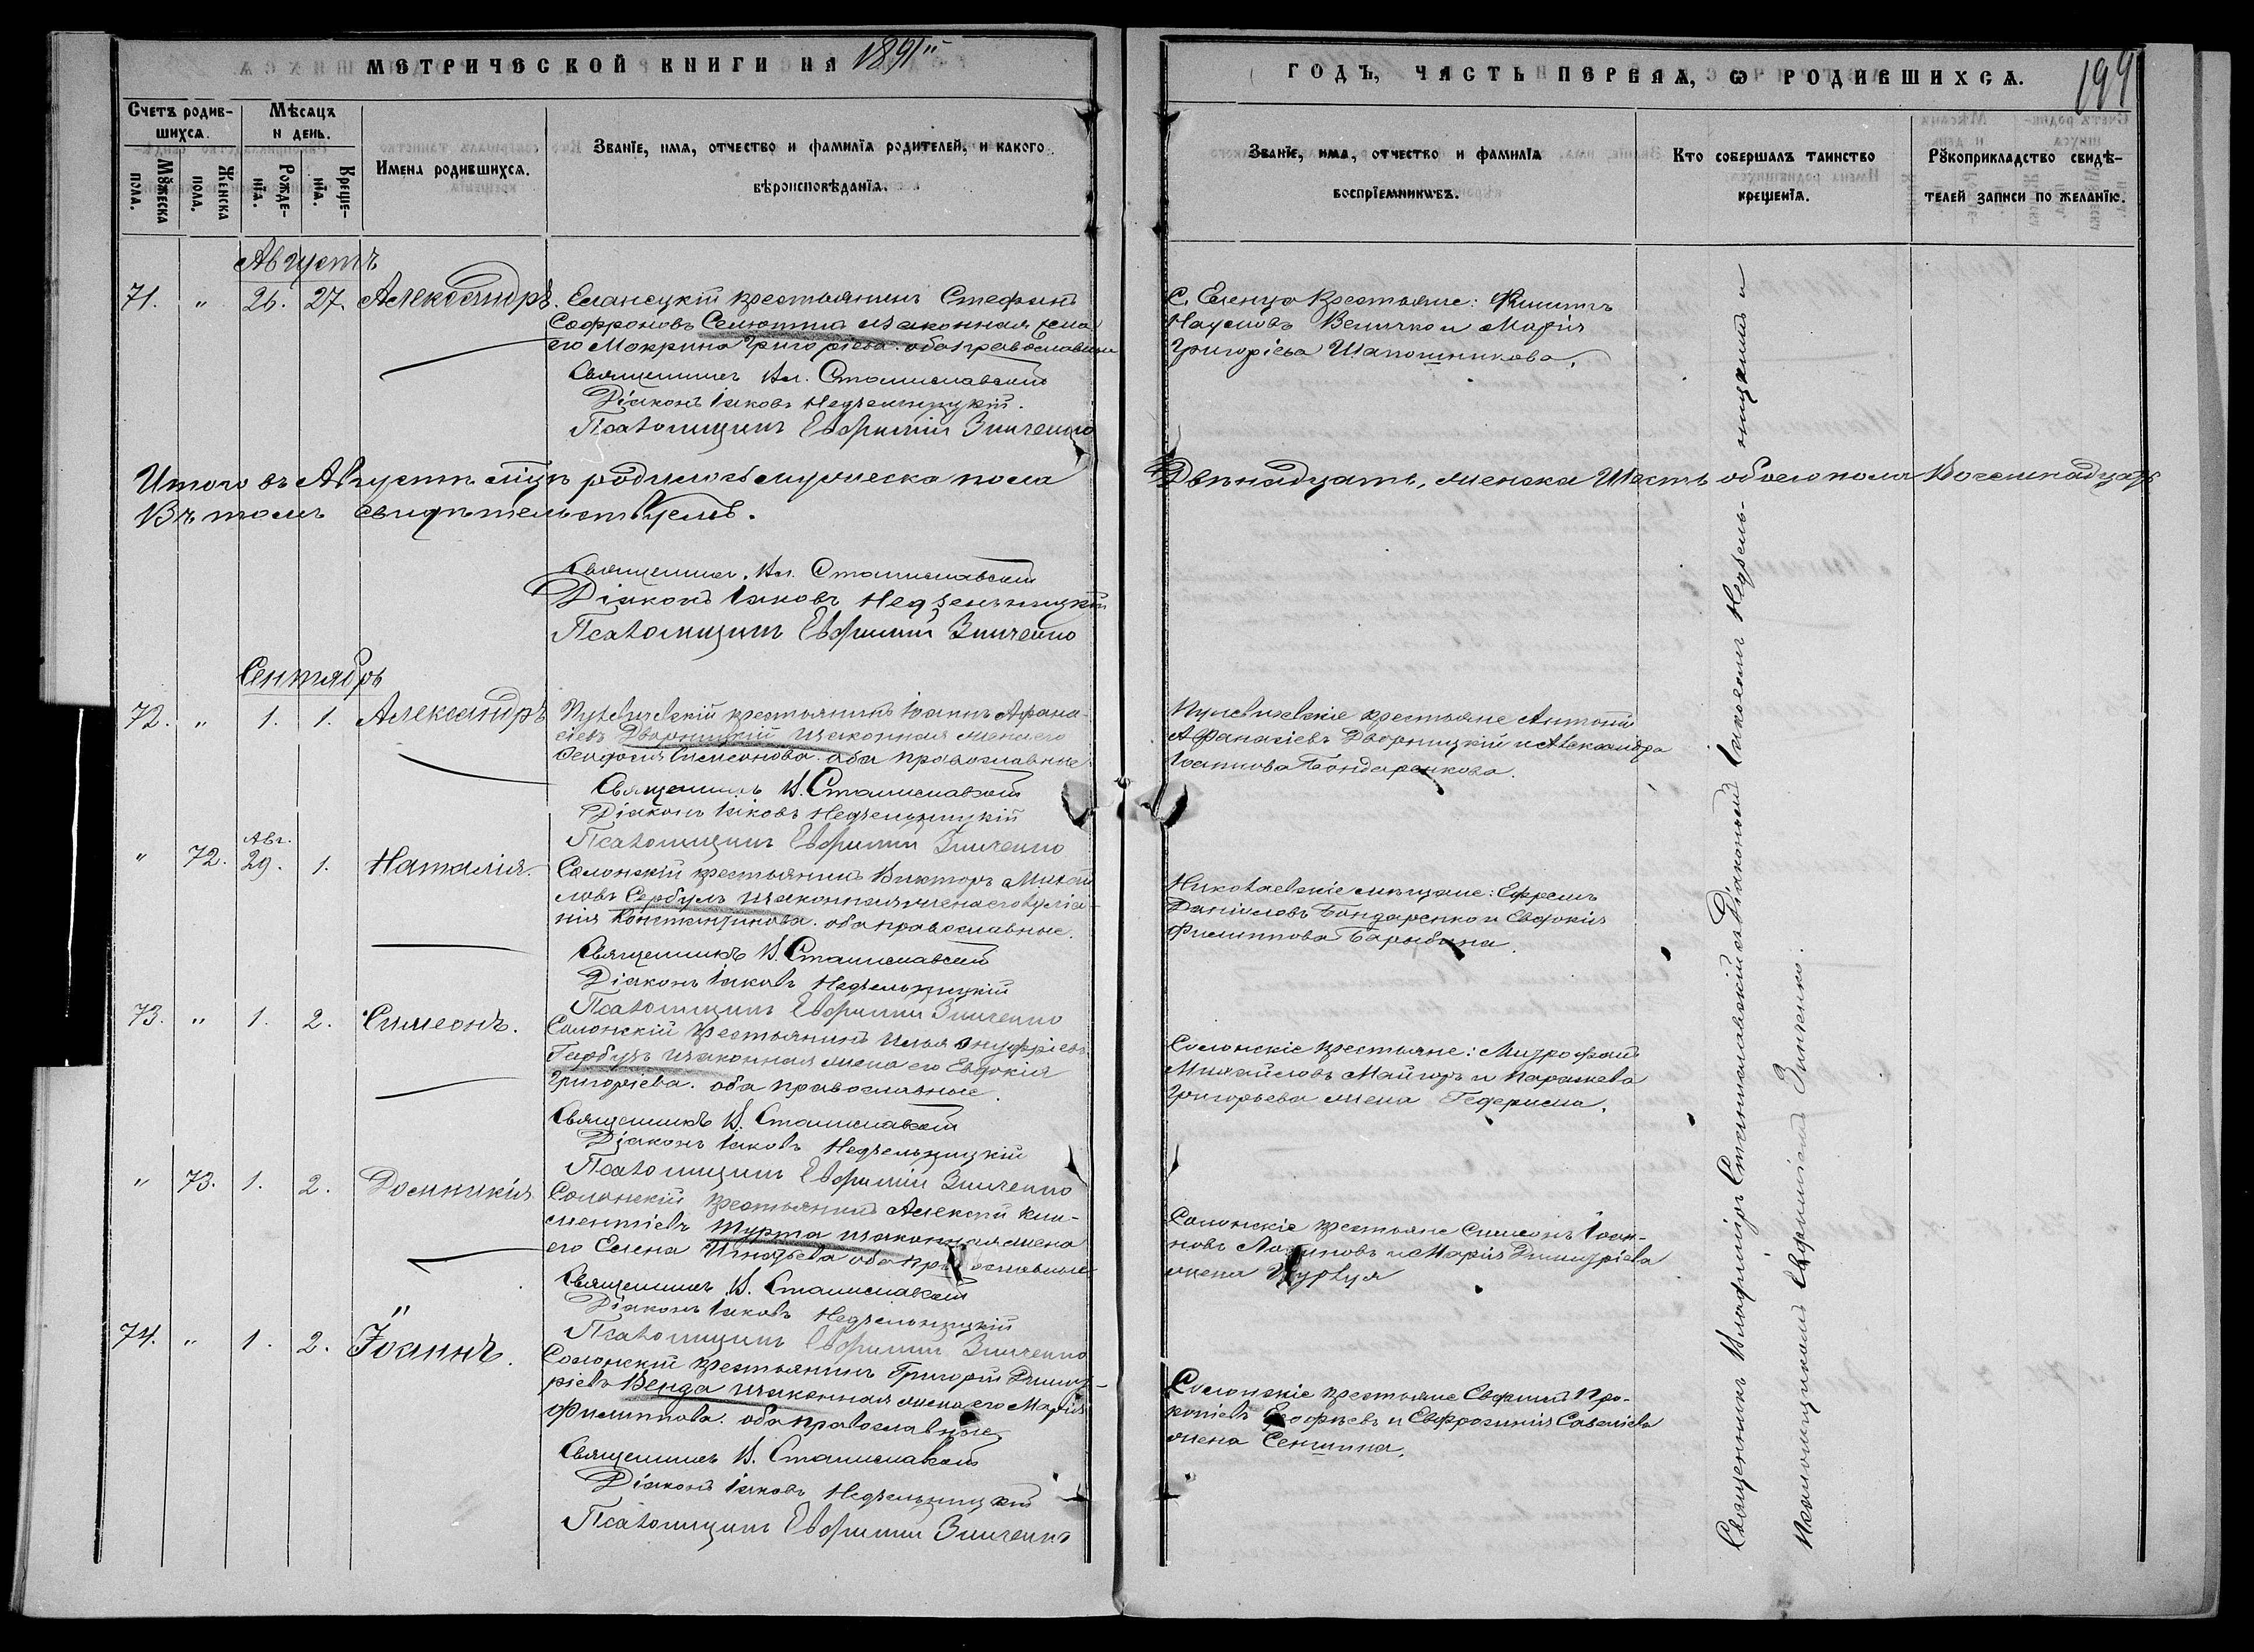 МЕТРИЧЕСКОЙ КНИГИ НА 1891
ГОДЪ, ЧАСТЬ ПЕРВАЯ, Ѡ РОДИВШИХСЯ.
199
Счетъ родив-
шихся.
Мꙋжеска
пола.
Женска
пола.
Мѣсяцъ
и день.
Рожде-
нїя.
Креще-
нїя.
Имена родившихся.
Званїе, имя, отчество и фамилїя родителей, и какого
вѣроисповѣданїя.
Званїе, имя, отчество и фамилїя
воспрїемниковъ.
Кто совершалъ таинство
крещенїя.
Рꙋкоприкладство свидѣ-
телей записи по желанїю.
Августъ
71. " 26. 27. Александръ.
Еланецкій крестьянинъ Стефанъ
Софроновъ Селютинъ и законная жена
его Мокрина Григоріева. оба православные
Священникъ Вл. Станиславскій
Діаконъ Іаковъ Недзельницкій.
Псаломщикъ Евфимій Зинченко
С. Еланца крестьяне: Филиппъ
Наумовъ Величко и Марія
Григоріева Шапошникова.
Итого въ Августѣ мцѣ родилось мужеска пола
Двѣнадцать, женска Шесть обоего пола Восемнадцать
Въ томъ свидѣтельствуемъ.
Священникъ Вл. Станиславскій
Діаконъ Іаковъ Недзельницкій
Псаломщикъ Евфимій Зинченко
Сентябрь
72. " 1. 1. Александръ
крестьянинъ Іоаннъ Афана-
сіевъ Дворницкій и законная жена его
Симеонова. оба православные
Священникъ В. Станиславскій
Діаконъ Іаковъ Недзельницкій
Псаломщикъ Евфимій Зинченко
крестьяне Антоній
Афанасіевъ Дворницкій и Александра
Іоаннова Бондаренкова.
" 72. Авг. 29. 1. Наталія.
Солонскій крестьянинъ Викторъ Михай-
ловъ Сербулъ и законная жена его Іуліа-
нія Константинова. оба православные.
Священникъ В. Станиславскій
Діаконъ Іаковъ Недзельницкій
Псаломщикъ Евфимій Зинченко
Николаевскіе мѣщане: Ефремъ
Даніиловъ Бондаренко и Евдокія
Филиппова Барыбина.
73. " 1. 2. Симеонъ.
Солонскій крестьянинъ Илья Онуфріевъ
Гарбузъ и законная жена его Евдокія
Григоріева. оба православные.
Священникъ В. Станиславскій
Діаконъ Іаковъ Недзельницкій
Псаломщикъ Евфимій Зинченко
Солонскіе крестьяне: Митрофанъ
Михайловъ Майгоръ и Параскева
Григорьева жена
" 73. 1. 2. Домникія
Солонскій крестьянинъ Алексѣй Кли-
ментіевъ Мурта и законная жена
его Елена Игнатьева оба православные
Священникъ В. Станиславскій
Діаконъ Іаковъ Недзельницкій
Псаломщикъ Евфимій Зинченко
Солонскіе крестьяне Симеонъ Іоан-
новъ и Марія Димитріева
жена
74. " 1. 2. Іоаннъ.
Солонскій крестьянинъ Григорій Димит-
ріевъ Венда и законная жена его Марія
Филиппова. оба православные
Священникъ В. Станиславскій
Діаконъ Іаковъ Недзельницкій
Псаломщикъ Евфимій Зинченко
Солонскіе крестьяне Евфимій Про-
копіевъ и Евфросинія Савеліева
жена
Священникъ Владиміръ Станиславскій съ Діакономъ Іаковомъ Недзельницкимъ и
Псаломщикомъ Евфиміемъ Зинченко.